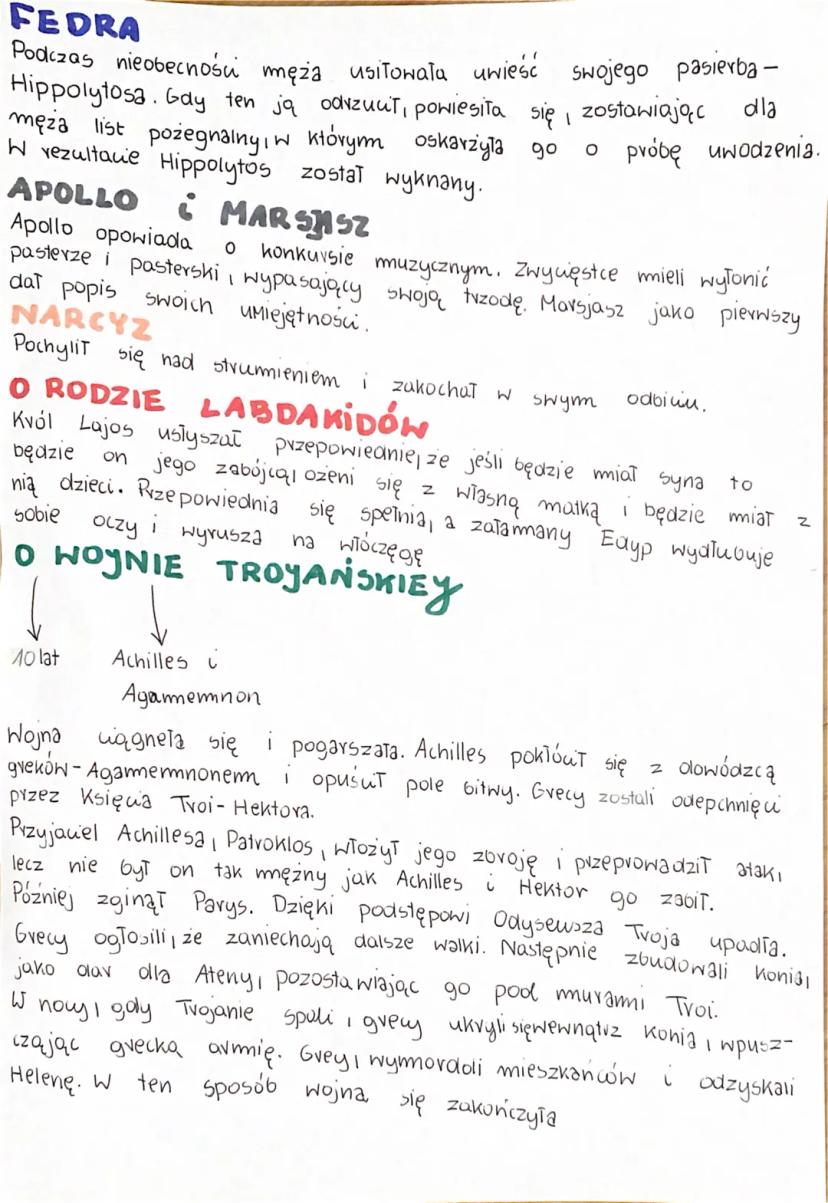 FEDRA
Podczas nieobecności męża usiłowała uwieść swojego pasierba-
Hippolytosa. Gdy ten ją odrzucił, powiesiła się, zostawiając dla
męża list pożegnalny, w którym oskarżyła go o próbę uwodzenia.
W rezultacie Hippolytos został wyknany.
APOLLO i MARSJASZ
Apollo opowiada o konkursie muzycznym. Zwycięstce mieli wyłonić
pasterze i pasterski, wypasający swoją trzodę. Marsjasz jako pierwszy
dał popis swoich umiejętności.
NARCYZ
Pochylił się nad strumieniem i zakochał w swym odbiciu.
O RODZIE LABDAKIDÓW
Król Lajos usłyszał przepowiednię, że jeśli będzie miał syna to
będzie on jego zabójcą, ożeni się z własną matką i będzie miał z
nią dzieci. Przepowiednia się spełnia, a załamany Edyp wydłubuje
sobie oczy i wyrusza na włóczęgę
O WOJNIE TROYAŃSKIEY
10 lat Achilles i
Agamemnon
Wojna ciągneła się i pogarszała. Achilles pokłócił się z dowódzcą
greków - Agamemnonem i opuścił pole bitwy. Grecy zostali odepchnięci
przez Księcia Troi - Hektora.
Przyjaciel Achillesa, Patroklos, włożył jego zbroję i przeprowadził atak,
lecz nie był on tak mężny jak Achilles i Hektor go zabił.
Później zginął Parys. Dzięki podstępowi Odyseusza Troja upadła.
Grecy ogłosili, że zaniechają dalsze walki. Następnie zbudowali konia,
jako dar dla Ateny, pozostawiając go pod murami Troi.
W nocy, gdy Trojanie spali, grecy ukryli sięwewnątrz konia, wpusz-
czając grecką armię. Grecy, wymordoli mieszkańców i odzyskali
Helenę. W ten sposób wojna się zakończyła